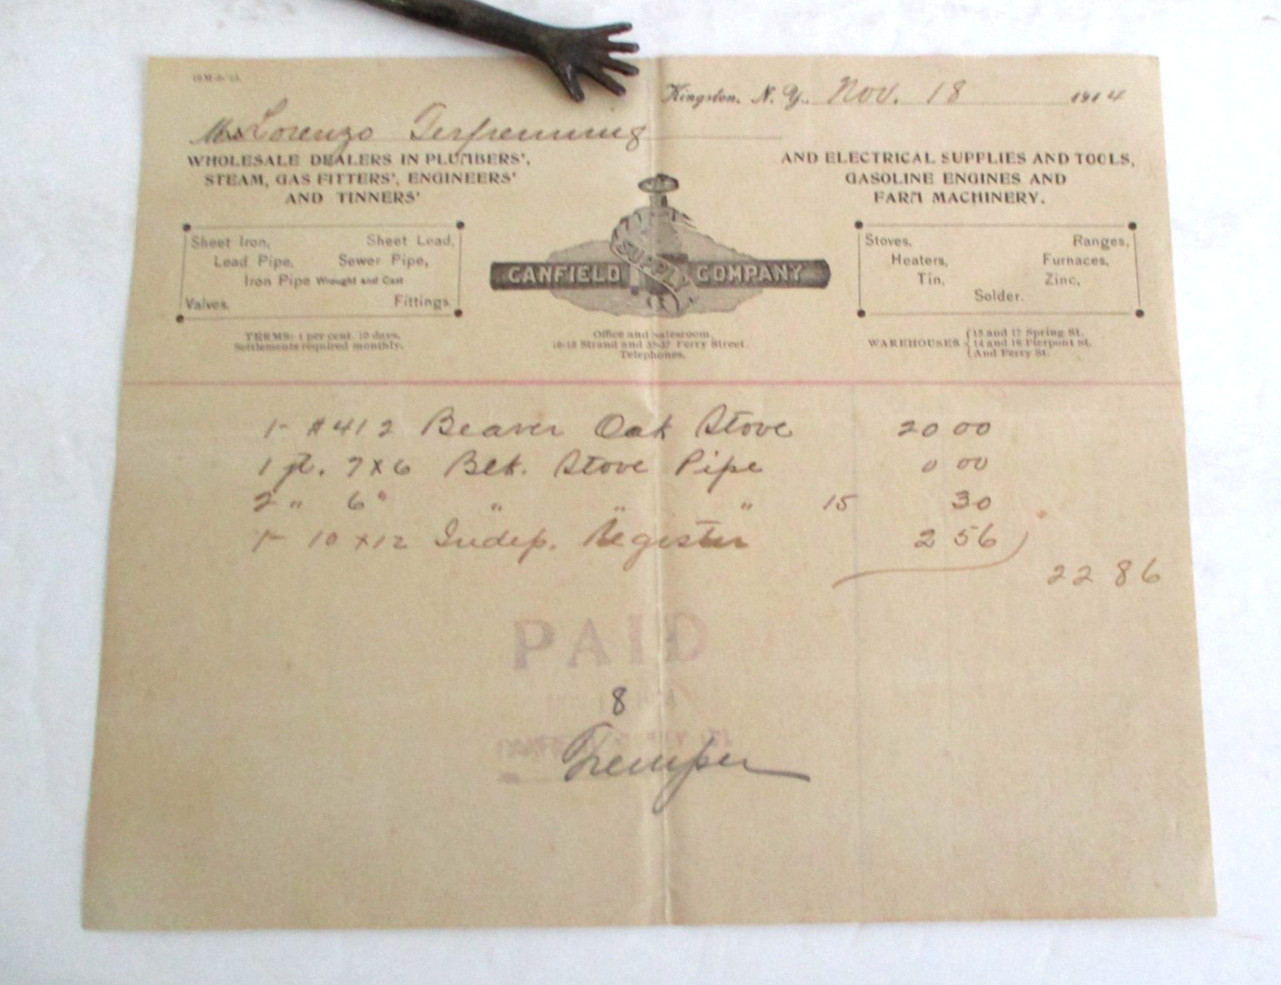 Kingston, N. Y., Nov. 18 1914
Mr. Lorenzo Terpenning
WHOLESALE DEALERS IN PLUMBERS',
STEAM, GAS FITTERS', ENGINEERS'
AND TINNERS'
AND ELECTRICAL SUPPLIES AND TOOLS,
GASOLINE ENGINES AND
FARM MACHINERY.
Sheet Iron, Sheet Lead,
Lead Pipe, Sewer Pipe,
Iron Pipe Wrought and Cast
Valves. Fittings.
CANFIELD SUPPLY COMPANY
Stoves, Ranges,
Heaters, Furnaces,
Tin, Zinc,
Solder.
TERMS: 1 per cent. 10 days.
Settlements required monthly.
Office and Salesroom,
16-18 Strand and 35-37 Ferry Street.
Telephones.
WAREHOUSES 15 and 17 Spring St.
14 and 16 Pierpont St.
And Ferry St.
1- #412 Beaver Oak Stove 20 00
1 jt. 7x6 Blk. Stove Pipe 0 00
2 " 6" " " " 15 30
1- 10 x 12 Indep. Register 2 56
22 86
PAID
8
Tremper